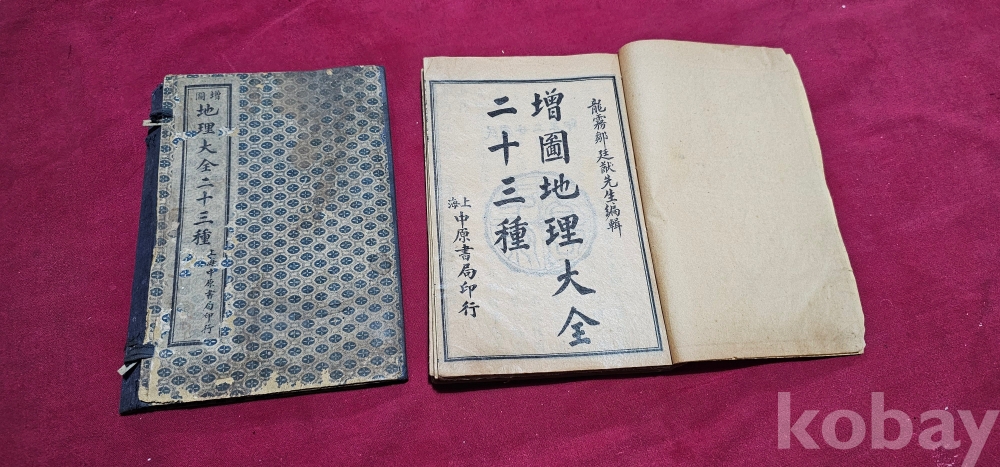 增圖
地理大全二十三種
上海中原書局印行
龍霧鄒廷猷先生編輯
增圖地理大全
二十三種
上海
中原書局印行
kobay